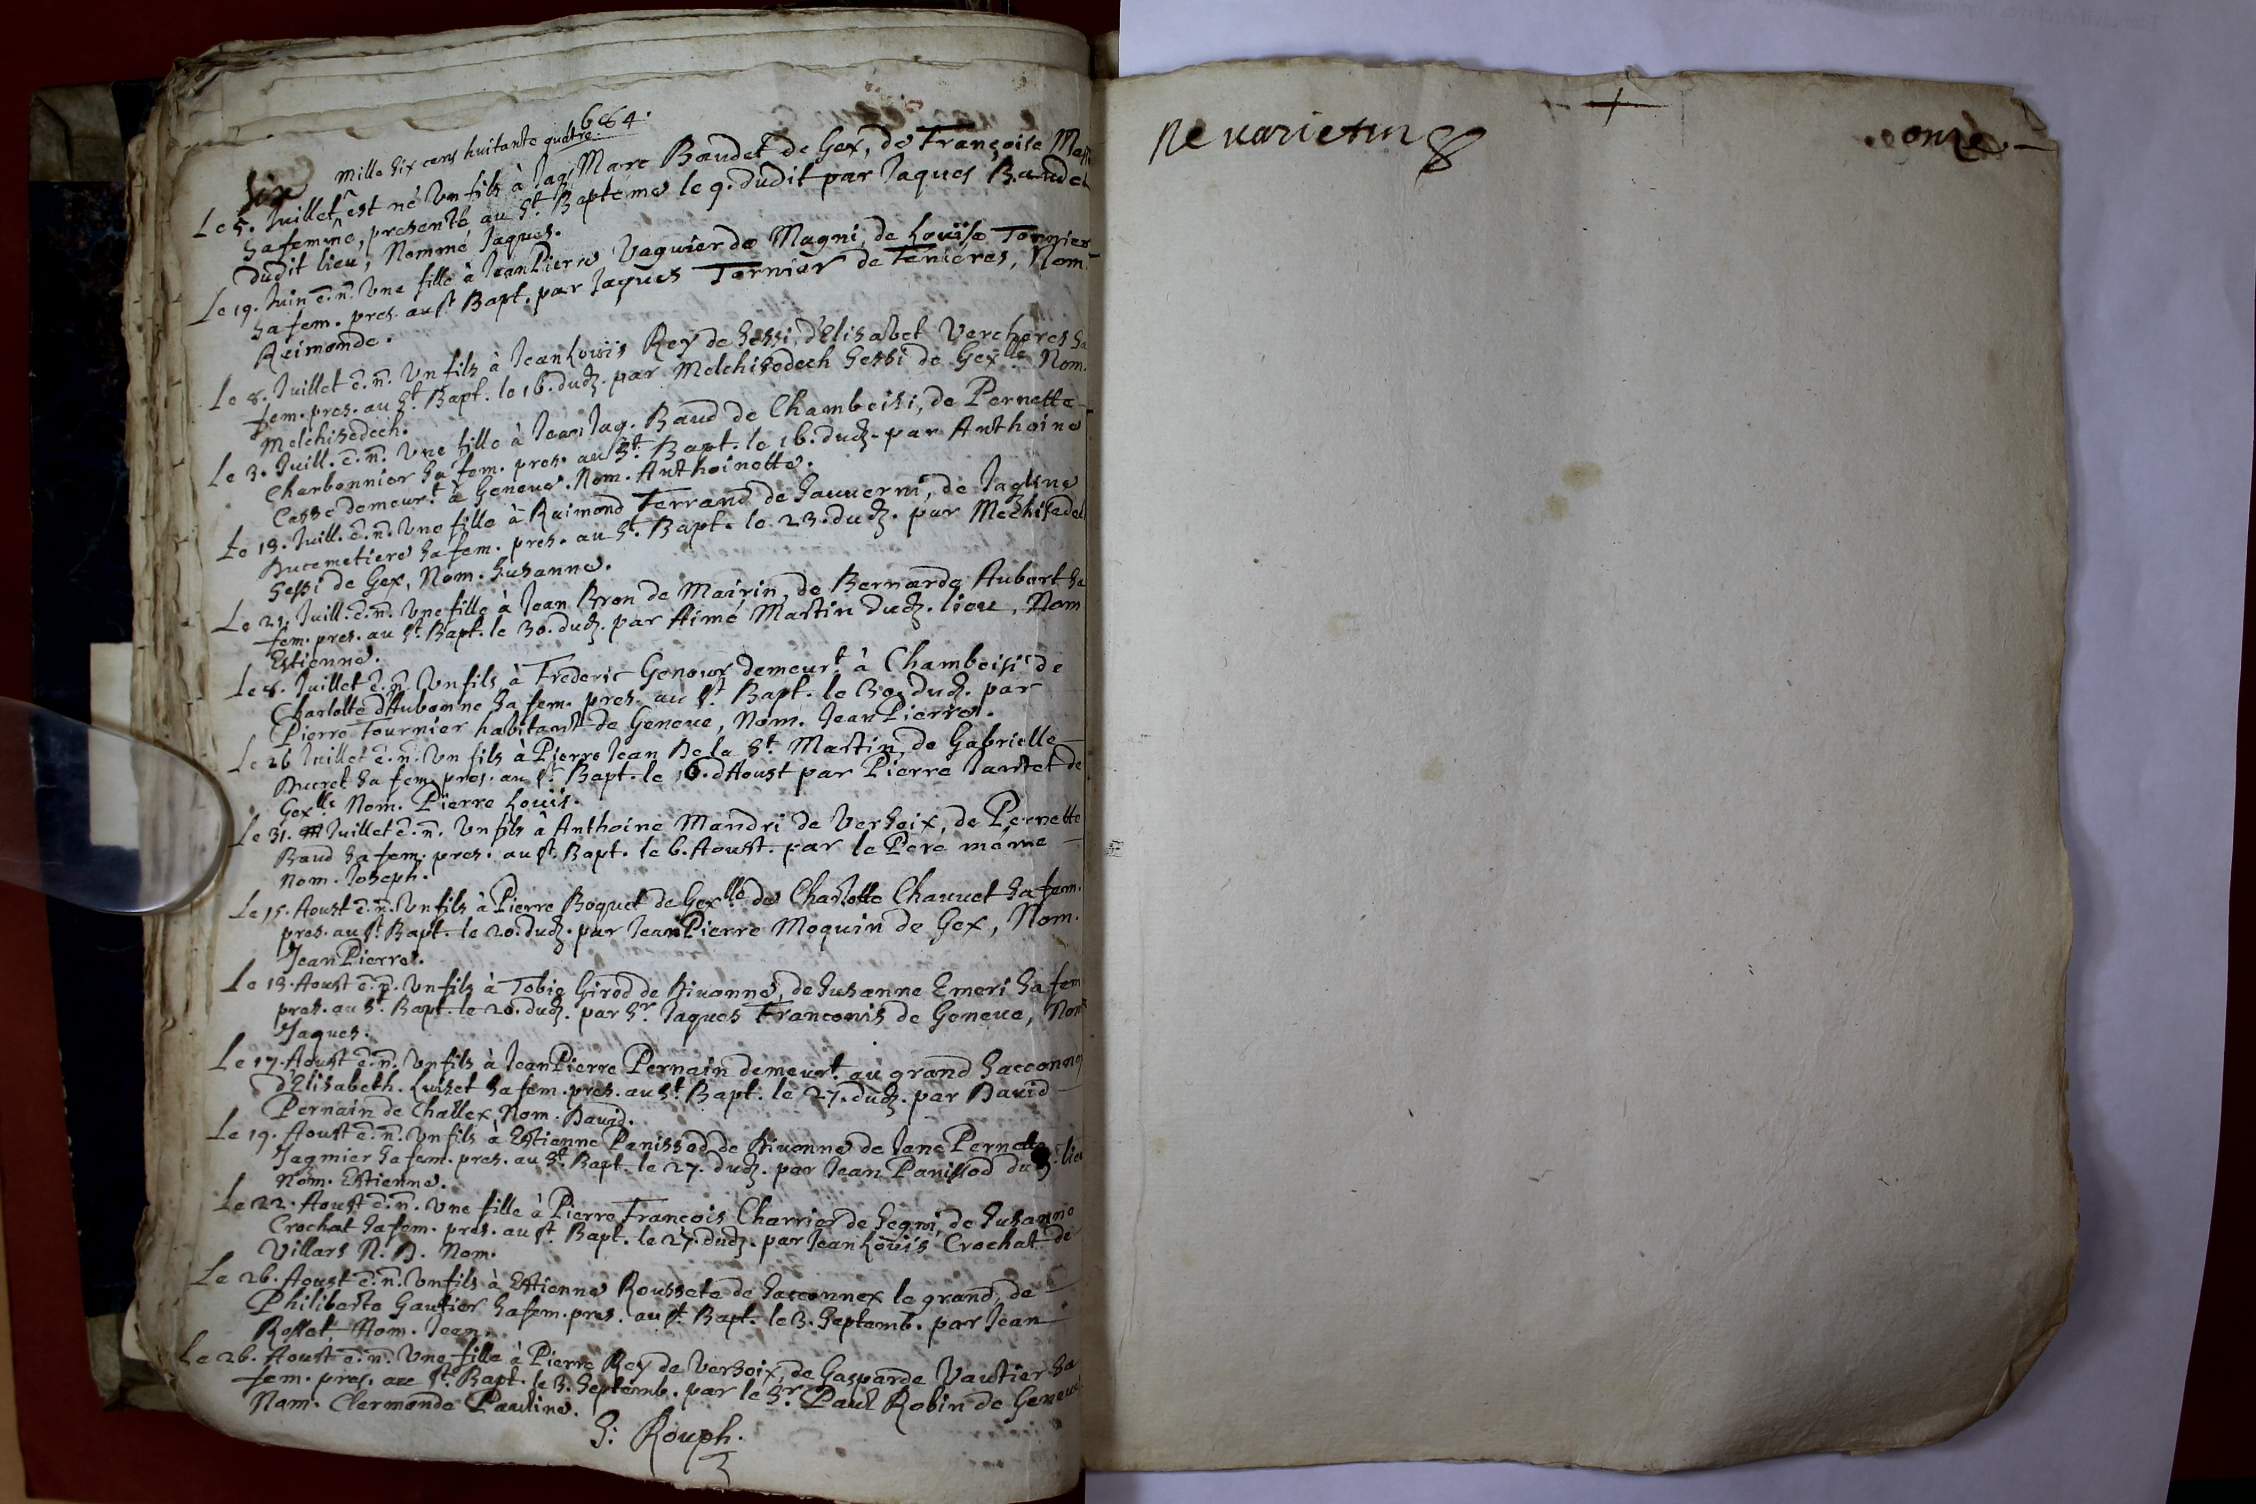 684.
mille six cens huitante quatre.
six
Le 5. Juillet est né Un fils à Jaq. Marc Baudet de Gex, de Françoise
sa femme, presenté au St. Bapteme le 9. dudit par Jaques Baudet
dudit lieu, Nommé Jaques.
Le 19. Juin e. n. Une fille à Jean Pierre Vaguier de Magni, de Louïse Tornier
sa fem. pres. au St Bapt. par Jaques Tornier de Fenieres, Nom.
Reimonde.
Le 8. Juillet e. n. Un fils à Jean Louïs Rey de Sessi, d'Elisabet Vercheres sa
fem. pres. au St. Bapt. le 16. dudz. par Melchisedech Sessi de Gexlle. Nom.
Melchisedech.
Le 3. Juill. e. n. Une fille à Jean Jaq. Baud de Chambeisi, de Pernette
Charbonnier sa fem. pres. au St. Bapt. le 16. dudz. par Anthoine
Casse demeurt. à Geneve. Nom. Anthoinette.
Le 18. Juill. e. n. Une fille à Raimond Ferrand de Sauverni, de Jaqlene
Ducemetiere sa fem. pres. au St. Bapt. le 23. dudz. par
Sessi de Gex, Nom. Susanne.
Le 21. Juill. e. n. Une fille à Jean Bron de Mairin, de Bernarde Aubert sa
fem. pres. au St. Bapt. le 30. dudz. par Aimé Martin dudz. lieu, Nom
Estienne.
Le 8. Juillet e. n. Un fils à Frederic Genour demeurt. à Chambeisi de
Charlotte d'Aubonne sa fem. pres. au St. Bapt. le 30. dudz. par
Pierre Tournier habitant de Geneve, Nom. Jean Pierre.
Le 26 Juillet e. n. Un fils à Pierre Jean De la St. Martin, de Gabrielle
Ducret sa fem. pres. au St. Bapt. le 16. d'Aoust par Pierre Jantet de
Gexlle Nom. Pierre Louïs.
Le 31. Juillet e. n. Un fils à Anthoine Mandri de Versoix, de Pernette
Baud sa fem. pres. au St. Bapt. le 6. Aoust. par le Pere méme
Nom. Joseph.
Le 15. Aoust e. n. Un fils à Pierre Boquet de Gexlle de Charlotte Chauvet sa fem.
pres. au St Bapt. le 20. dudz. par Jean Pierre Moquin de Gex, Nom.
Jean Pierre.
Le 18. Aoust e. n. Un fils à Tobie Girod de Divonne, de Susanne Emeri sa fem
pres. au St. Bapt. le 20. dudz. par Sr. Jaques Franconis de Geneve, Nom.
Jaques.
Le 17. Aoust e. n. Un fils à Jean Pierre Pernain demeurt. au grand Sacconnex
d'Elisabeth. Luiset sa fem. pres. au St Bapt. le 27. dudz. par David
Pernain de Challex, Nom. David.
Le 19. Aoust e. n. Un fils à Estienne Panissod de Divonne de Jane Pernette
Jagmier sa fem. pres. au St. Bapt. le 27. dudz. par Jean Panissod dudz. lieu
Nom. Estienne.
Le 22. Aoust e. n. Une fille à Pierre François Charrier de Segni, de Susanne
Crochat sa fem. pres. au St. Bapt. le 27. dudz. par Jean Louïs Crochat de
Villars N. D. Nom.
Le 26. Aoust e. n. Un fils à Estienne Roussete de Sacconnex le grand, de
Philiberte Gautier sa fem. pres. au St. Bapt. le 3. Septemb. par Jean
Rosset, Nom. Jean.
Le 26. Aoust e. n. Une fille à Pierre Rey de Versoix, de Gasparde Vautier sa
fem. pres. au St. Bapt. le 3. Septemb. par le Sr. Paul Robin de Geneve
Nom. Clermonde Pauline.
S: Rouph.
Ne varietur
onze